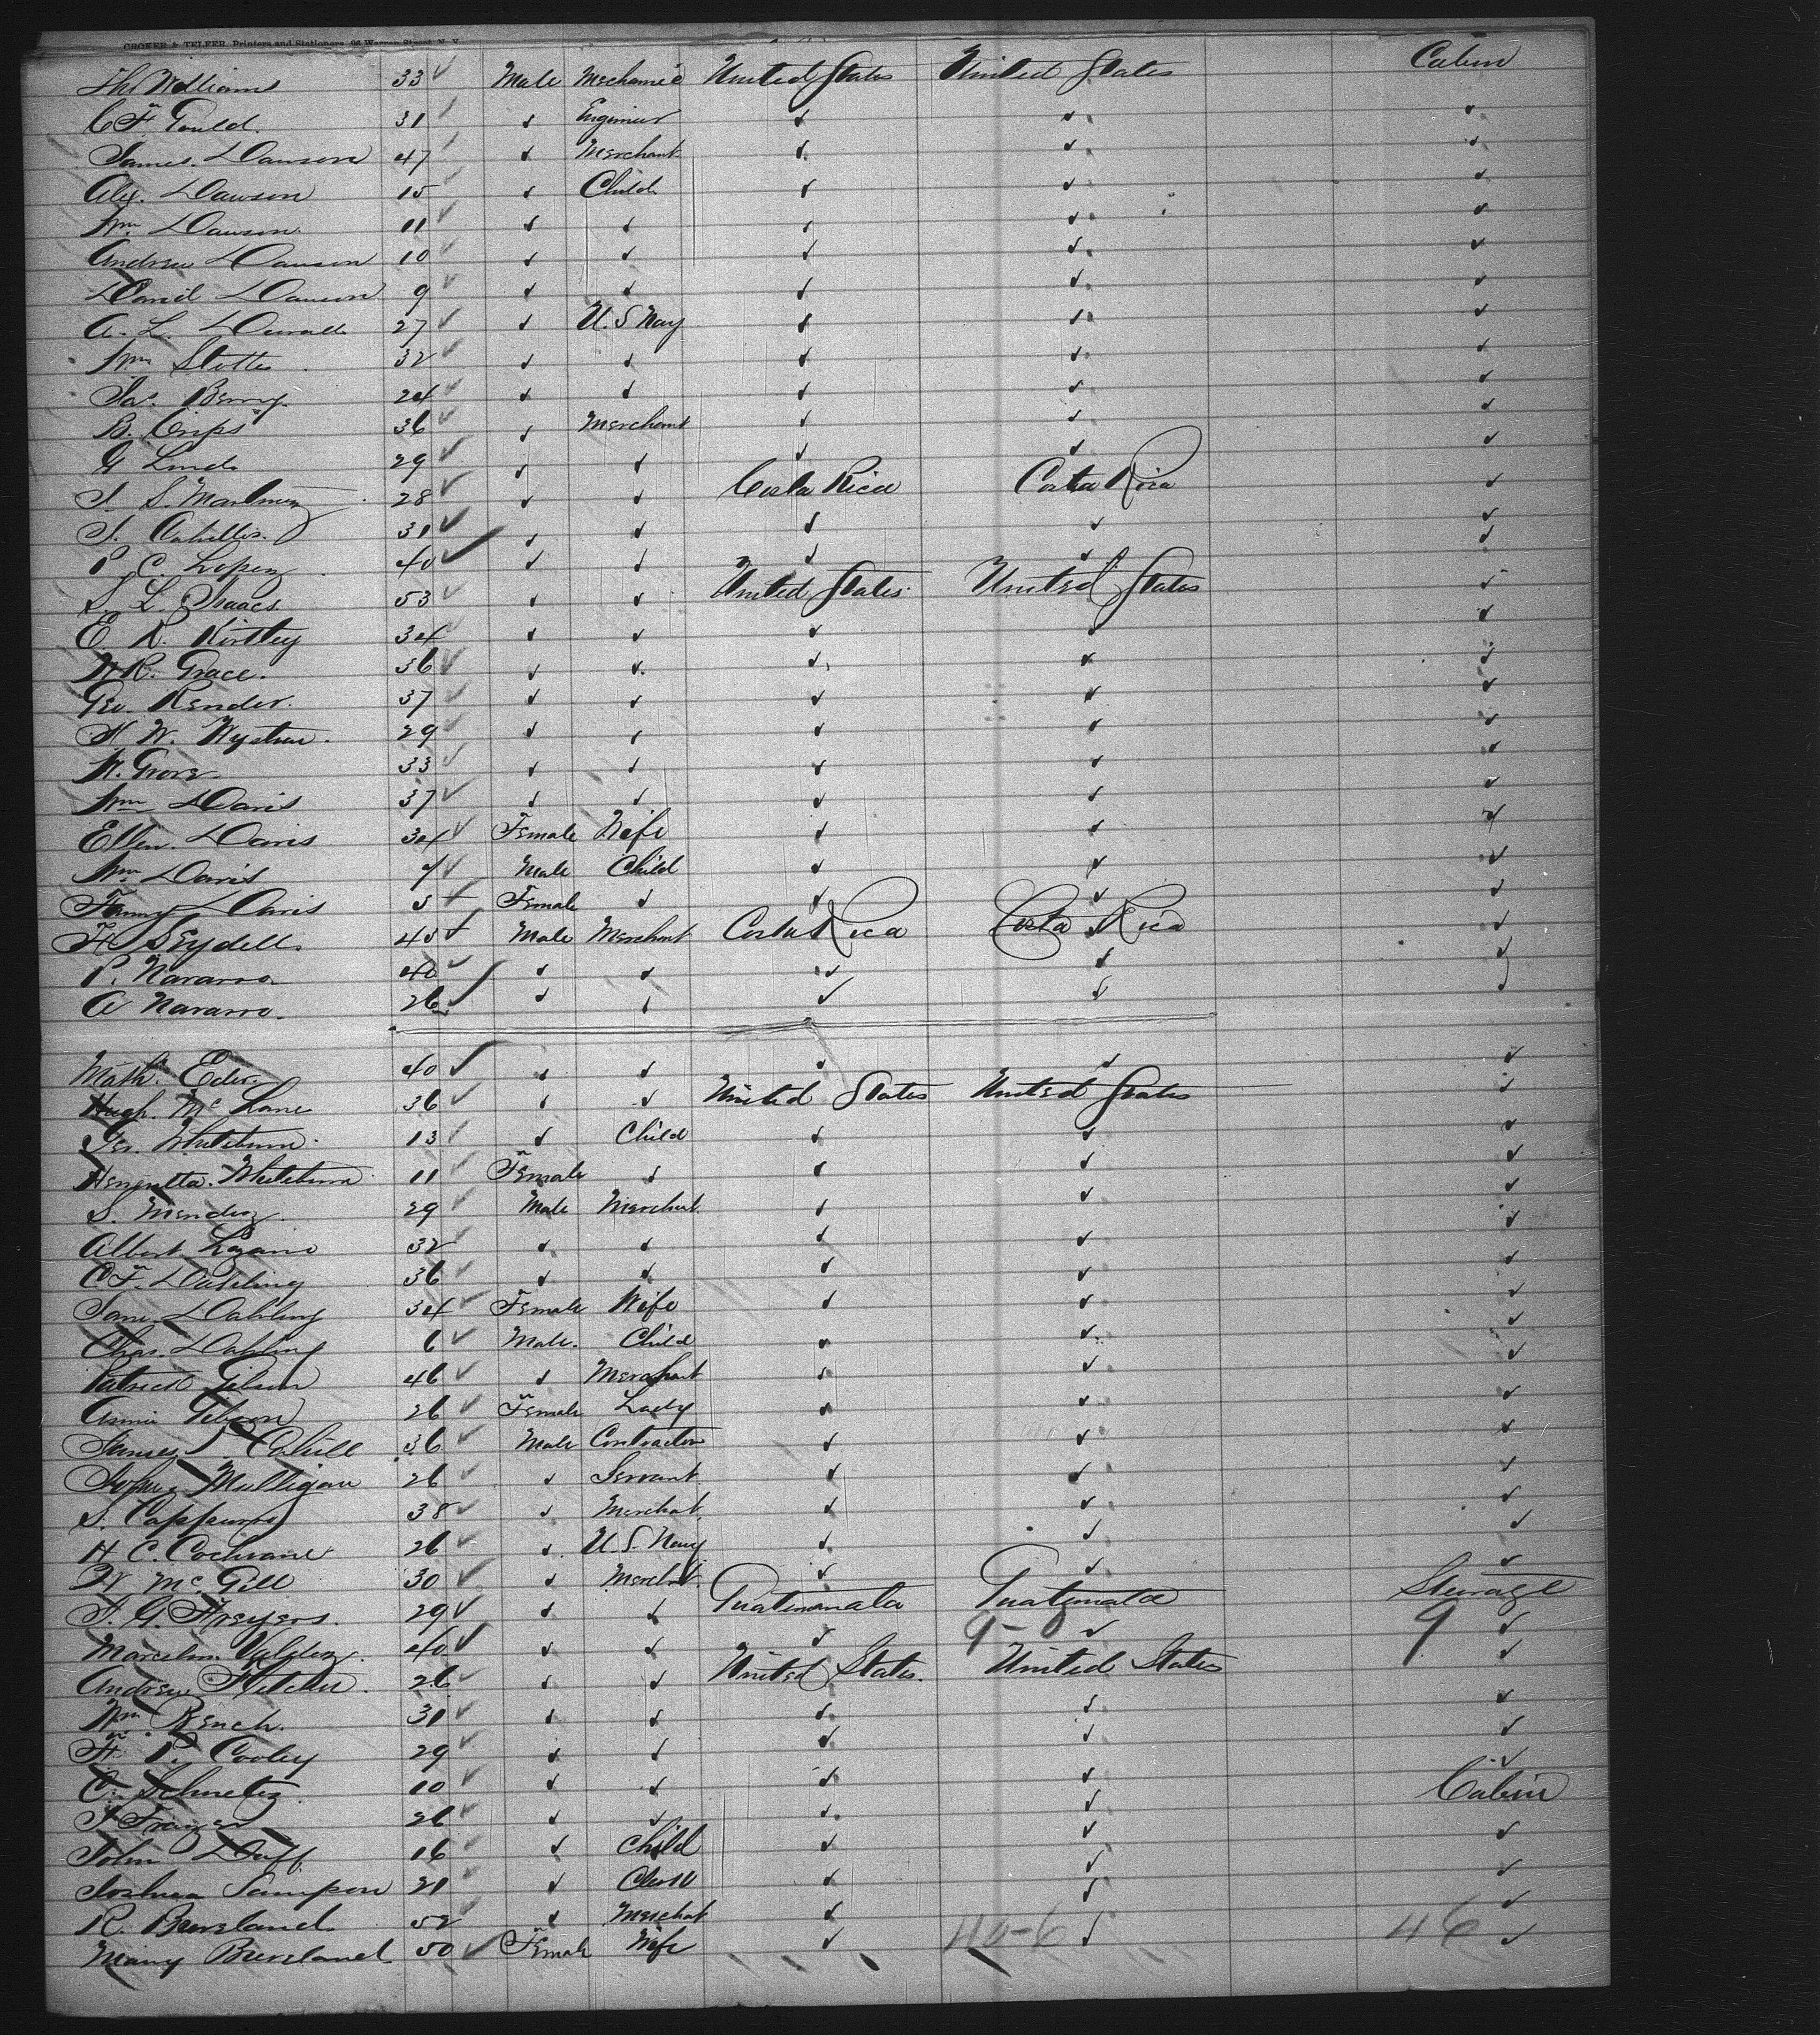 CROKER & TELFER, Printers and Stationers, 96 Warren Street, N. Y.
Thos Williams 33 ✓ Male Mechanic United States United States Cabin
C F. Gould. 31 ✓ ✓ Engineer ✓ ✓ ✓
James. Dawson 47 ✓ ✓ Merchant ✓ ✓ ✓
Alex. Dawson 15 ✓ ✓ Child ✓ ✓ ✓
Wm Dawson. 11 ✓ ✓ ✓ ✓ ✓ ✓
Andrew Dawson 10 ✓ ✓ ✓ ✓ ✓ ✓
David Dawson 9 ✓ ✓ ✓ ✓ ✓ ✓
A. L. 27 ✓ ✓ U. S Navy ✓ ✓ ✓
Wm Stotts 32 ✓ ✓ ✓ ✓ ✓ ✓
Jas. Berry 24 ✓ ✓ ✓ ✓ ✓ ✓
B. Crips 36 ✓ ✓ Merchant ✓ ✓ ✓
G Lind 29 ✓ ✓ ✓ ✓ ✓ ✓
J. S. Martinez 28 ✓ ✓ ✓ Costa Rica Costa Rica ✓
J. 31 ✓ ✓ ✓ ✓ ✓ ✓
P C. Lopez 40 ✓ ✓ ✓ ✓ ✓ ✓
S. L. Isaacs 53 ✓ ✓ ✓ United States United States ✓
E R. Kirtley 34 ✓ ✓ ✓ ✓ ✓ ✓
W R. Grace. 36 ✓ ✓ ✓ ✓ ✓ ✓
Geo. Render. 37 ✓ ✓ ✓ ✓ ✓ ✓
H W. 29 ✓ ✓ ✓ ✓ ✓ ✓
W. Grove 33 ✓ ✓ ✓ ✓ ✓ ✓
Wm Davis 37 ✓ ✓ ✓ ✓ ✓ ✓
Ellen. Davis 34 ✓ Female Wife ✓ ✓ ✓
Wm Davis 7 ✓ Male Child ✓ ✓ ✓
Fanny Davis 5 ✓ Female ✓ ✓ ✓ ✓
H Seydell. 45 ✓ Male Merchant Costa Rica Costa Rica ✓
P. Navarro 40 ✓ ✓ ✓ ✓ ✓ ✓
A Navarro. 26 ✓ ✓ ✓ ✓ ✓ ✓
Math. Eder. 40 ✓ ✓ ✓ ✓ ✓ ✓
Hugh. Mc Lane 36 ✓ ✓ ✓ United States United States ✓
Geo. Whitburn 13 ✓ ✓ Child ✓ ✓ ✓
Henrietta. Whitburn 11 ✓ Female ✓ ✓ ✓ ✓
S. Mendez 29 ✓ Male Merchant ✓ ✓ ✓
Albert Lozano 32 ✓ ✓ ✓ ✓ ✓ ✓
C F. Dahling 36 ✓ ✓ ✓ ✓ ✓ ✓
Jane. Dahling 34 ✓ Female Wife ✓ ✓ ✓
Chas. Dahling 6 ✓ Male. Child ✓ ✓ ✓
Patrick Gibson 46 ✓ ✓ Merchant ✓ ✓ ✓
Annie Gibson 26 ✓ Female Lady ✓ ✓ ✓
James J. Cahill 36 ✓ Male Contractor ✓ ✓ ✓
John Mulligan 26 ✓ ✓ Servant ✓ ✓ ✓
S. 38 ✓ ✓ Merchat ✓ ✓ ✓
H C. Cochrane 26 ✓ ✓ U. S. Navy ✓ ✓ ✓
W Mc. Gill 30 ✓ ✓ Merchat ✓ ✓ ✓
F. G. Hreyers. 29 ✓ ✓ ✓ Guatemala Guatemala Sterage
Marcelin. Valdez. 40 ✓ ✓ ✓ ✓ 9-0 ✓ 9 ✓
Andrew Fletcher. 26 ✓ ✓ ✓ United States. United States ✓
Wm Rench. 31 ✓ ✓ ✓ ✓ ✓ ✓
H P. Cooley 29 ✓ ✓ ✓ ✓ ✓ ✓
C. Schmetz. 10 ✓ ✓ ✓ ✓ ✓ ✓
J Frazer 26 ✓ ✓ ✓ ✓ ✓ Cabin
John Duff 16 ✓ ✓ Child ✓ ✓ ✓
Joshua Sampson 21 ✓ ✓ ✓ ✓ ✓
R. Baveland 52 ✓ ✓ Merchat ✓ ✓ ✓
Mary Baveland 50 ✓ Female Wife ✓ 40-6 ✓ 46 ✓